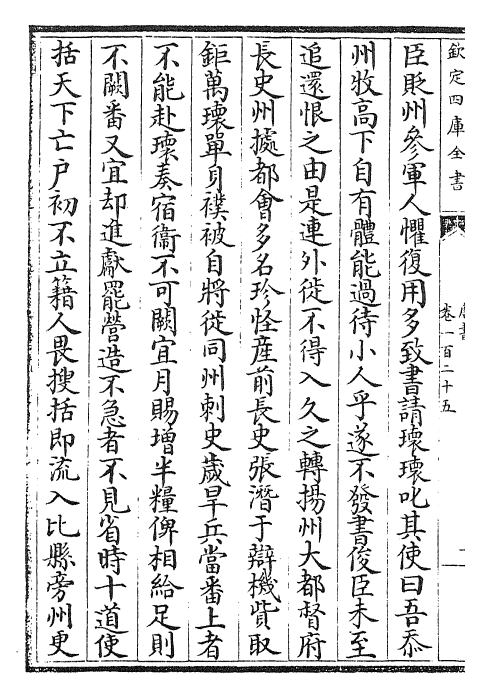 欽定四庫全書
唐書
卷一百二十五
臣貶州參軍人懼復用多致書請瓌瓌叱其使曰吾忝
州牧高下自有體能過待小人乎遂不發書俊臣未至
追還恨之由是連外徙不得入久之轉揚州大都督府
長史州據都會多名珍怪産前長史張潛于辯機貲取
鉅萬瓌單身襆被自將徙同州刺史歲旱兵當番上者
不能赴瓌奏宿衞不可闕宜月賜增半糧俾相給足則
不闕番又宜却進獻罷營造不急者不見省時十道使
括天下亡戶初不立籍人畏搜括即流入比縣旁州更